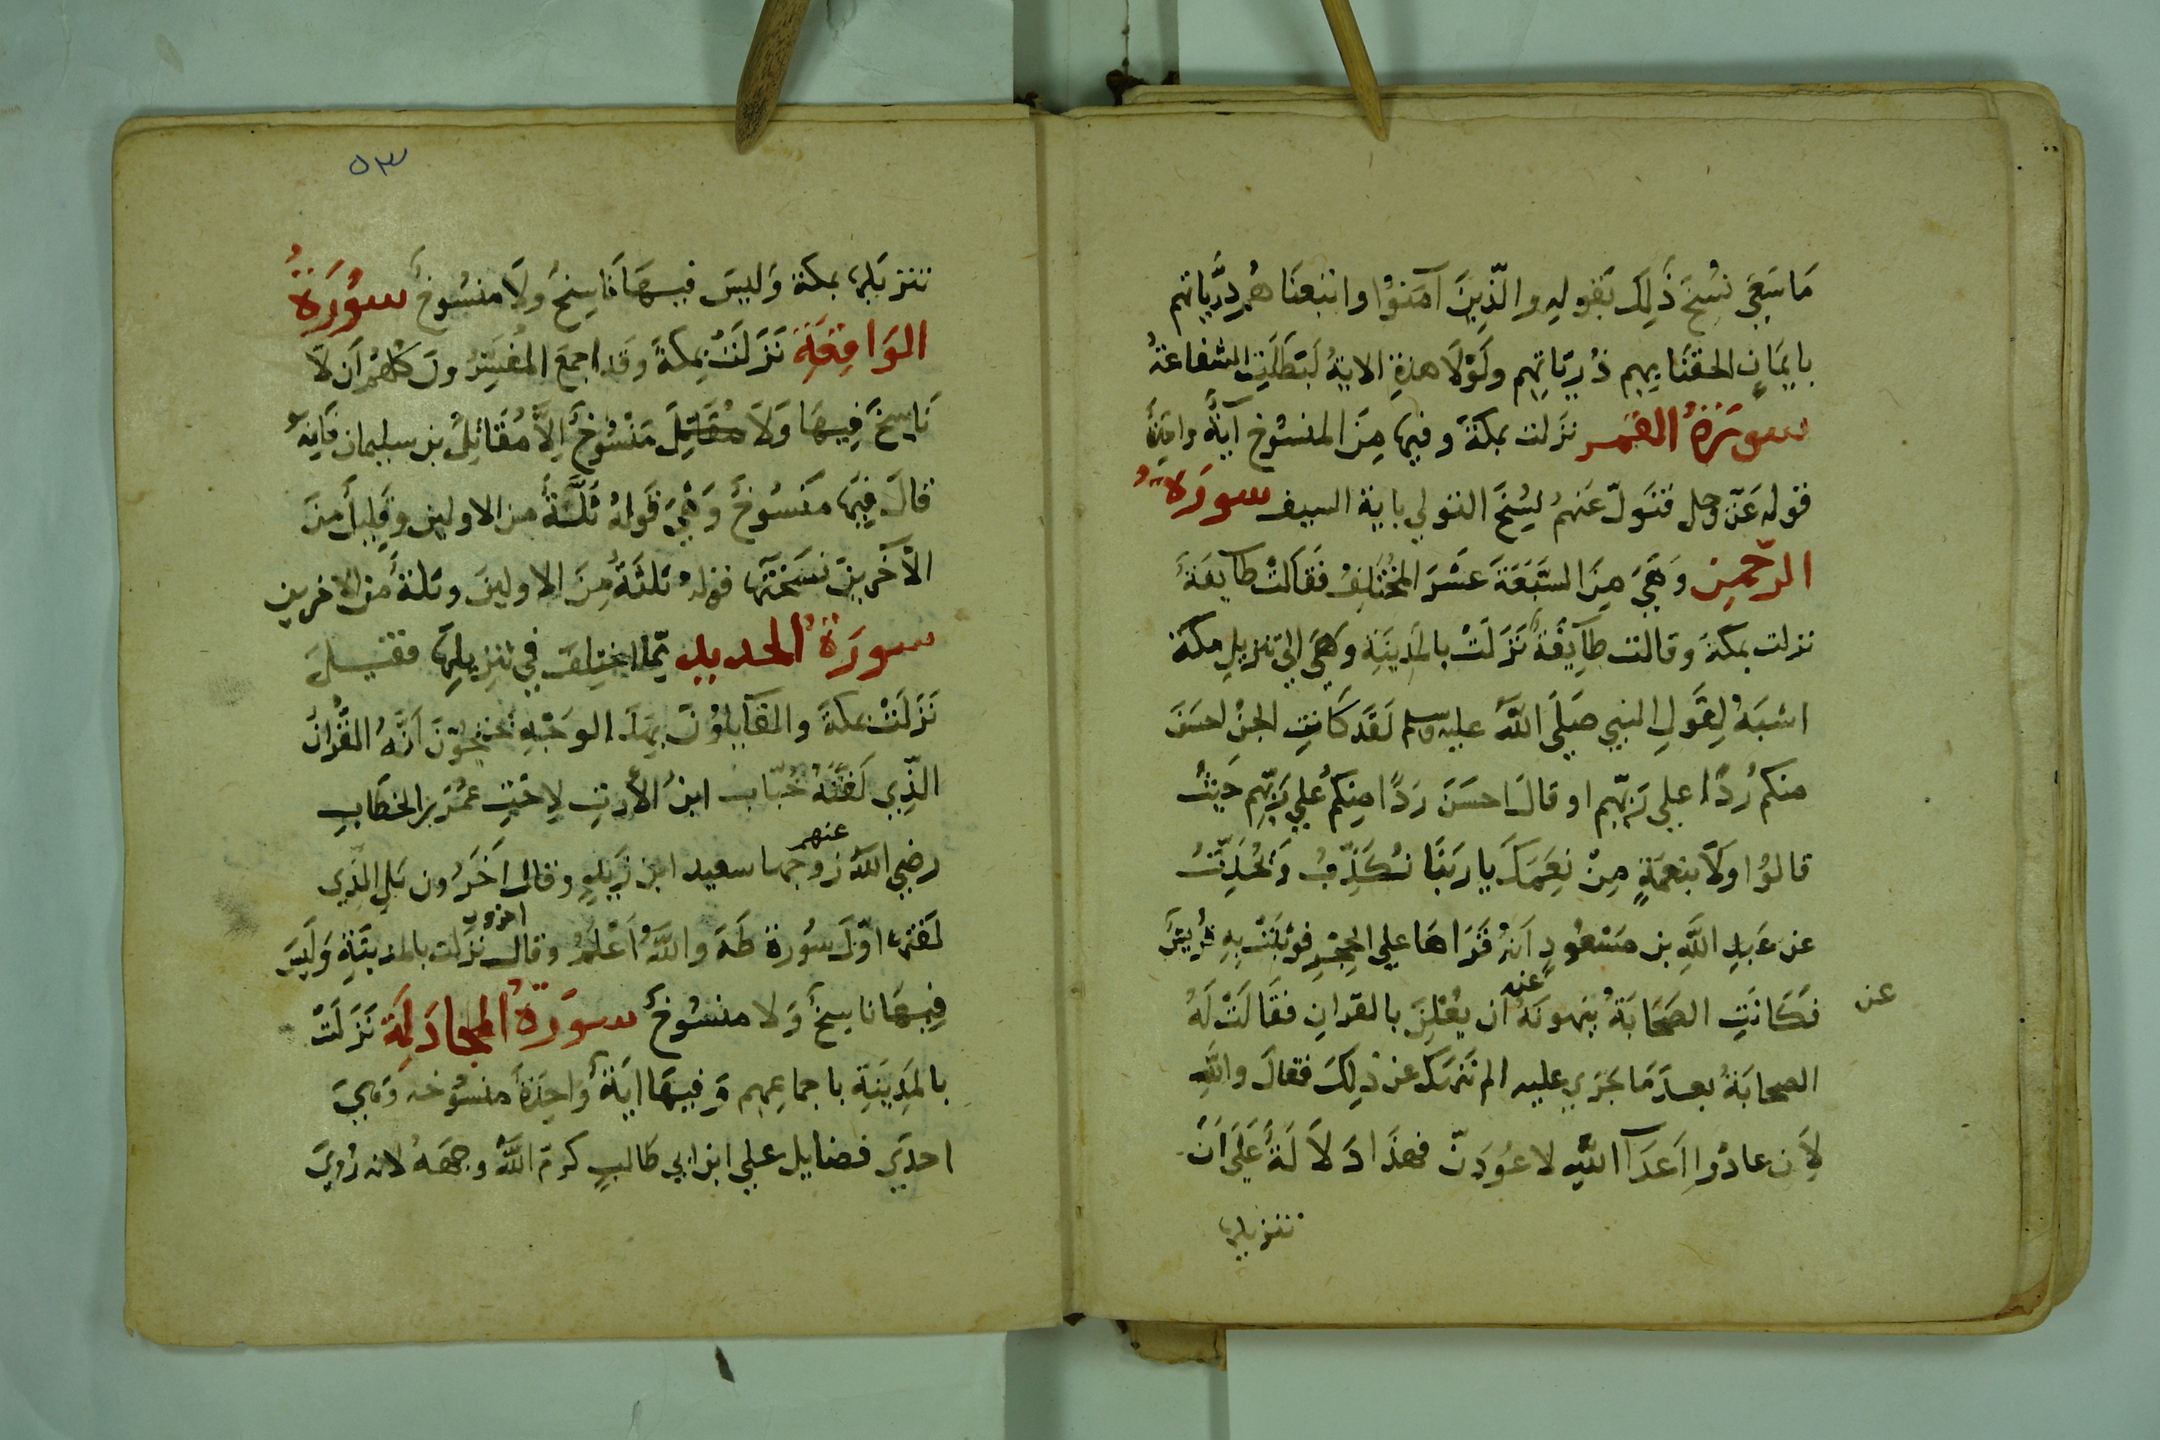 مَا سَعَى نُسِخَ ذَلِكَ بَقولِهِ والذّينَ آمَنوُا واتبعنَا هُمِ ذرِّيَاتهم
بايمَانٍ الحقنَا بِهِم ذُريّاتِهِم ولَوْلَا هذةِ الايةُ لَبَطَلَتِ الشفاعَةُ
سورَةُ القمر نزَلت بمكةَ وفيها مِنَ المنسوُخ آيةٌ واحِدَةٌ
قولهِ عَزّ وجل فتوَلّ عَنهمُ نُسِخَ التولي باية السيف سورَةُ
الرحمن وَهَيَ مِنَ السَّبَعَةَ عَشَرَ المُختَلِفُ فقَالتْ طايِفَةٌ
نزلت بمكةَ وقالت طايِفَةٌ نَزَلَتْ بالمدِينَةِ وَهَيَ الى تنزيلِ مكة
اشبَهُ لِقَولِ النبي صَلَى اللهُ عليه وسلم لَقَد كَانتِ الجنُ احسَنَ
منكم رُدًا علي رَبّهم او قالَ احسَنَ رَدًا مِنكمُ علي رَبِّهِم حَيثُ
قالوُا ولَا بنعمَةٍ مِنْ نِعَمِكَ يا ربَنَا نُكَذِّبُ وَنُحَدِّثُ
عن عَبدِ اللَّهِ بن مَسْعُودٍ اَنهُ قَرَاهَا علي الحِجْرِ فوَثَبَتْ بِهِ قُرَيشٌ
عن
فكَانَتِ الصَحَابَةُ ينهونَهُ عنه أن يُعْلِنَ بالقرانِ فقَالَتْ لَهُ
الصحابَةُ بعدَ مَا جَرَي عليه الم نَنهَكَ عن ذلِكَ فقالَ واللَّهِ
لِاَن عادُوا اَعدَآ اللَّهِ لاعُوَدَنّ فهذَا دَلَالَةٌ عَلَى اَنَ
تنزيلها
٥٣
تنزيلها بمكة وَليسَ فيهَا نَاسِخٌ ولَا منسُوخٌ سُورَةُ
الوَاقِعَةِ نَزَلَتْ بمكةَ وقَد اجمعَ المُفسِّرُونَ كُلهُم اَن لَا
نَاسِخَ فِيهَا وَلَا مُقَاتِلَ مَنْسُوخٌ اِلَّا مُقَاتِلُ بن سليمان فَاِنهُ
قالَ فِيهَا مَنسُوخٌ وَهْيَ قَولهُ ثُلَّةٌ من الاولين وقَلِيلٌ مِنَ
الآخرينَ نَسَخَتهَا قولهُ ثلةٌ مِنَ الاولينَ وثلةٌ من الاخرين
سورَةُ الحديد مِّمَا اختِلِفَ في تنزيلِهَا فقيلَ
نَزَلَتْ بمكةَ والقايلوُنَ بهَذَا الوَجْهِ يحتجوّنَ اَنَّهُ القُرآنُ
الذّيِ لَقَنَهُ خَبّاب ابنُ الأرتِ لِاختِ عمُرَ بن الخطابِ
رضي اللهُ عنهم زوجها سعيد ابن زَيدٍ وقالَ اَخَرُون بَلِ الذي
لقنها اوّلَ سوُرة طَهَ واللَّهُ اَعْلَمُ وقالَ اخرون نزَلت بالمدينَةِ وَلَيسَ
فِيهَا نا سِخٌ وَلَا منسُوخٌ سورَةُ المجادَلَةِ نَزَلَتْ
بالمَدِينَةِ باجماعِهِم وَفيهَا ايَةٌ وَاحِدَةٌ منسوُخه وَهيَ
احدَي فضايل علي ابن ابي طالبٍ كرمَ اللَّهُ وجهَهُ لانه رُويَ